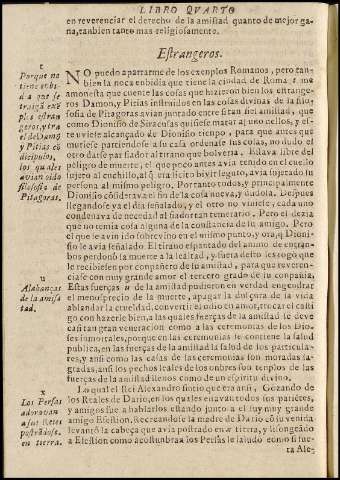 LIBRO QVARTO
en reverenciar el derecho de la amistad quanto de mejor ga-
na, tanbien tanto mas religiosamente.
Estrangeros.
t
Porque no
tiene enbi-
dia que se
traigā exē-
plos estran
geros, y tra
e el de Damō
y Pitias cō
dicipulos,
los quales
avian oido
filosofia de
Pitagoras.
NO puedo apartarme de los exenplos Romanos, pero tan-
bien la noca enbidia que tiene la ciudad de Roma t me
amonesta que cuente las cosas que hizieron bien los estrange-
ros Damon, y Pitias instruidos en las cosas divinas de la filo-
sofia de Pitagoras avian juntado entre si tan fiel amistad, que
como Dionisio de Siracusas quisiese matar a uno dellos, y es-
te uviese alcançado de Dionisio tienpo, para que antes que
muriese partiendose a su casa ordenase sus cosas, no dudo el
otro darse por fiador al tirano que bolveria. Estava libre del
peligro de muerte, el que poco antes avia tenido en el cuello
sujeto al cuchillo, al q̄ era licito bivir seguro, avia sujetado su
persona al mismo peligro. Por tanto todos, y principalmente
Dionisio cōsiderava el fin de la cosa nueva, y dudosa. Despues
llegandose ya el dia señalado, y el otro no viniese, cada uno
condenava de necedad al fiador tan temerario. Pero el dezia
que no temia cosa alguna de la constancia de su amigo. Pero
el que le avia ido sobrevino en el mismo punto, y ora q̄ Dioni-
sio le avia señalado. El tirano espantado del animo de entran-
bos perdonò la muerte a la lealtad, y fuera desto les rogò que
le recibiesen por conpañero de su amistad, para que reveren-
ciase con muy grande amor el tercero grado de su conpañia.
u
Alabanças
de la amis-
tad.
Estas fuerças u de la amistad pudieron en verdad engendrar
el menosprecio de la muerte, apagar la dulçura de la vida
ablandar la crueldad, convertir el odio en amor, trocar el casti
go con hazerle bien, a las quales fuerças de la amistad se deve
casi tan gran veneracion como a las ceremonias de los Dio-
ses inmortales, porque en las ceremonias se contiene la salud
publica, en las fuerças de la amistad la salud de los particula-
res, y ansi como las casas de las ceremonias son moradas sa-
gradas, ansi los pechos leales de los onbres son tenplos de las
fuerças de la amistad llenos como de un espiritu divino.
x
Los Persas
adoravan
a sus Reies
postrādose
en tierra.
Lo qual el Rei Alexandro sintio que era ansi, Gozando de
los Reales de Dario, en los quales enavan todos sus parietes,
y amigos fue a hablarlos estando junto a el su muy grande
amigo Efestion. Recreandose la madre de Dario cō su venida
levantò la cabeça que avia postrado en x tierra, y lisongeado
a Efestion como acostunbran los Persas le saludo como si fue-
ra Ale-